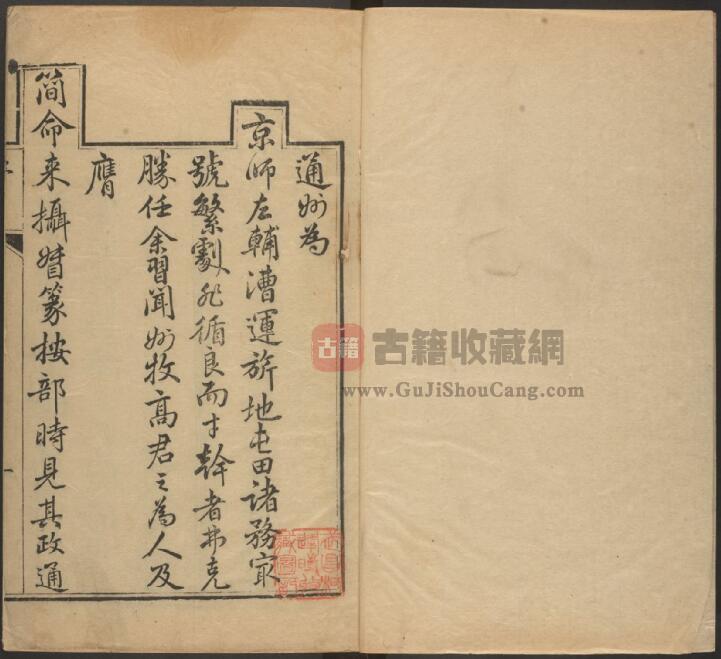 通州為
京師左輔漕運旂地屯田諸務寔
號繁劇非循良而才幹者弗克
勝任余習聞州牧高君之為人及
膺
簡命來攝督篆按部時見其政通
古籍 古籍收藏網
www.GuJiShouCang.com